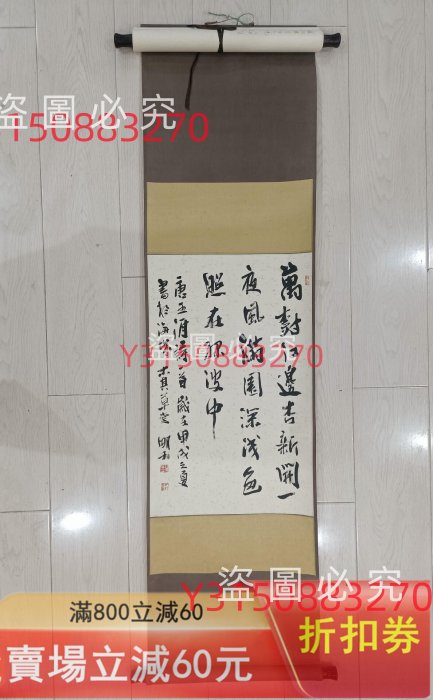 盜圖必究
Y3150883270
萬樹江邊杏新開一
夜風滿園深淺色
照在綠波中
唐王涯詩一首歲在甲戌之夏
盜圖必究
Y3150883270
盜圖必究
Y3150883270
滿800立減60
賣場立減60元
折扣券